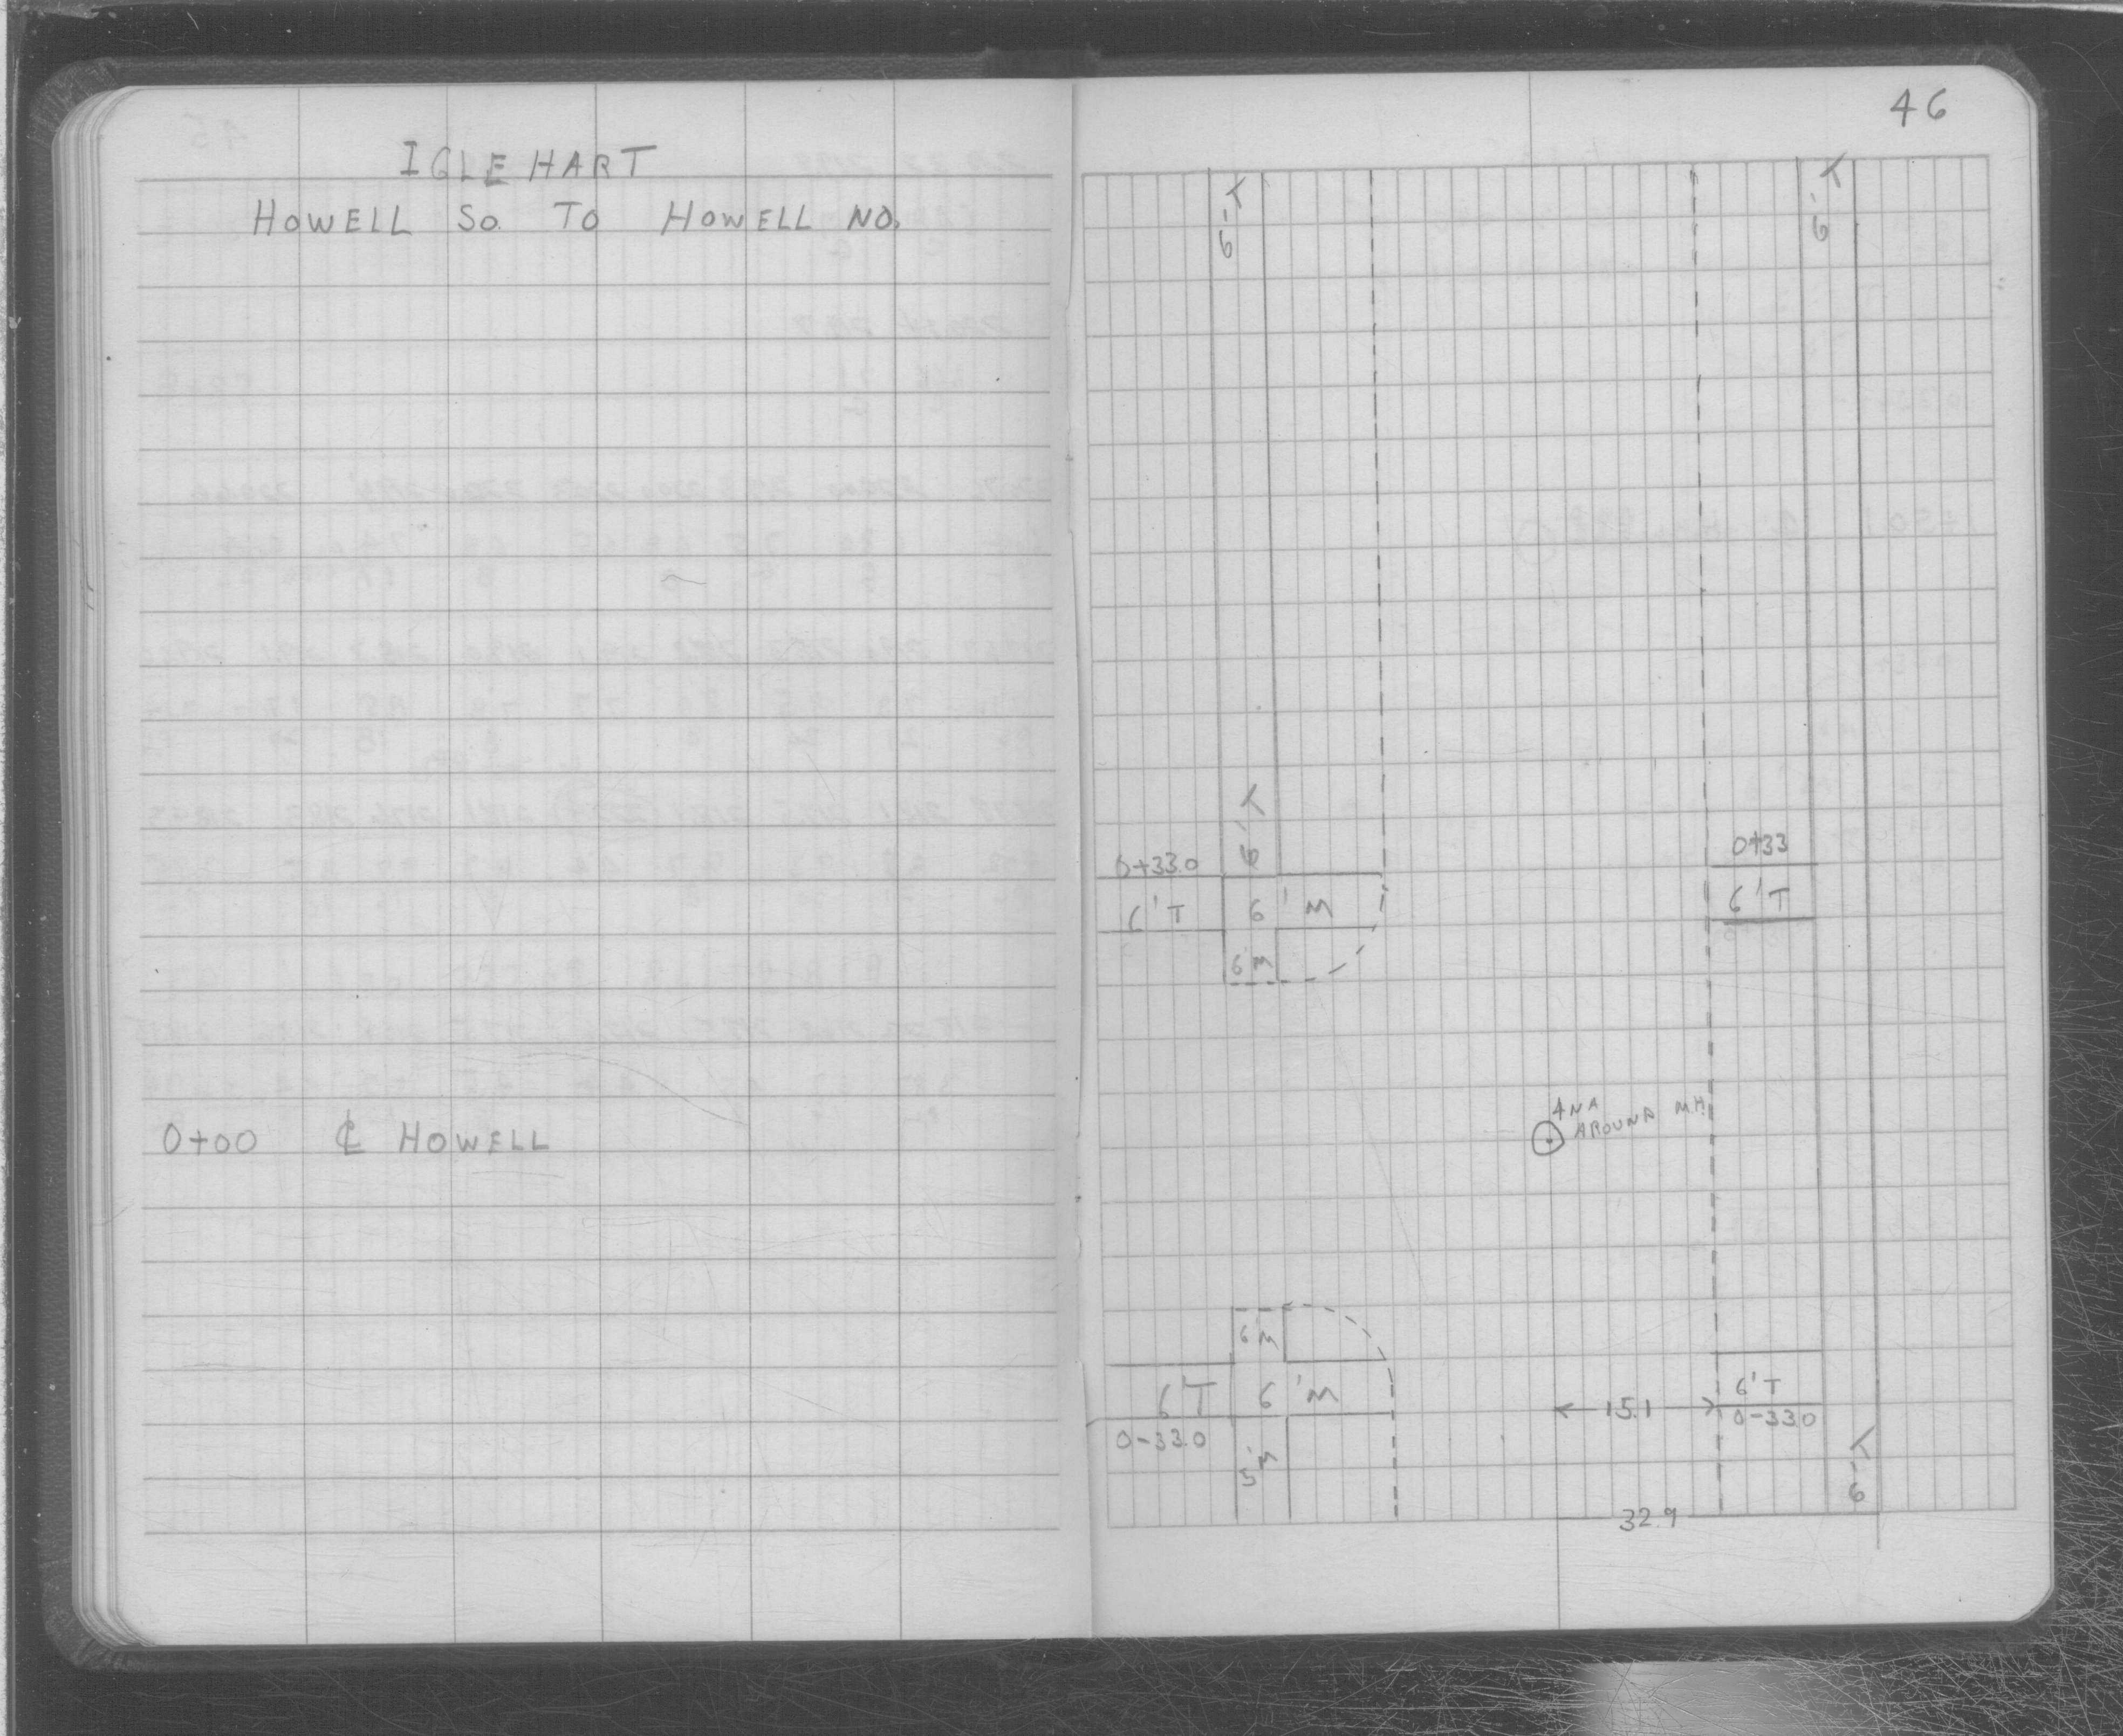 IGLEHART
HOWELL SO. TO HOWELL NO.
0+00 ℄ HOWELL
46
6'T
6'T
6'T
0+33.0
6'T
6'M
6'M
0+33
6'T
4 NA
AROUND M.H.
6'M
6'T
6'M
0-33.0
5'M
15.1
6'T
0-33.0
6'T
32.9